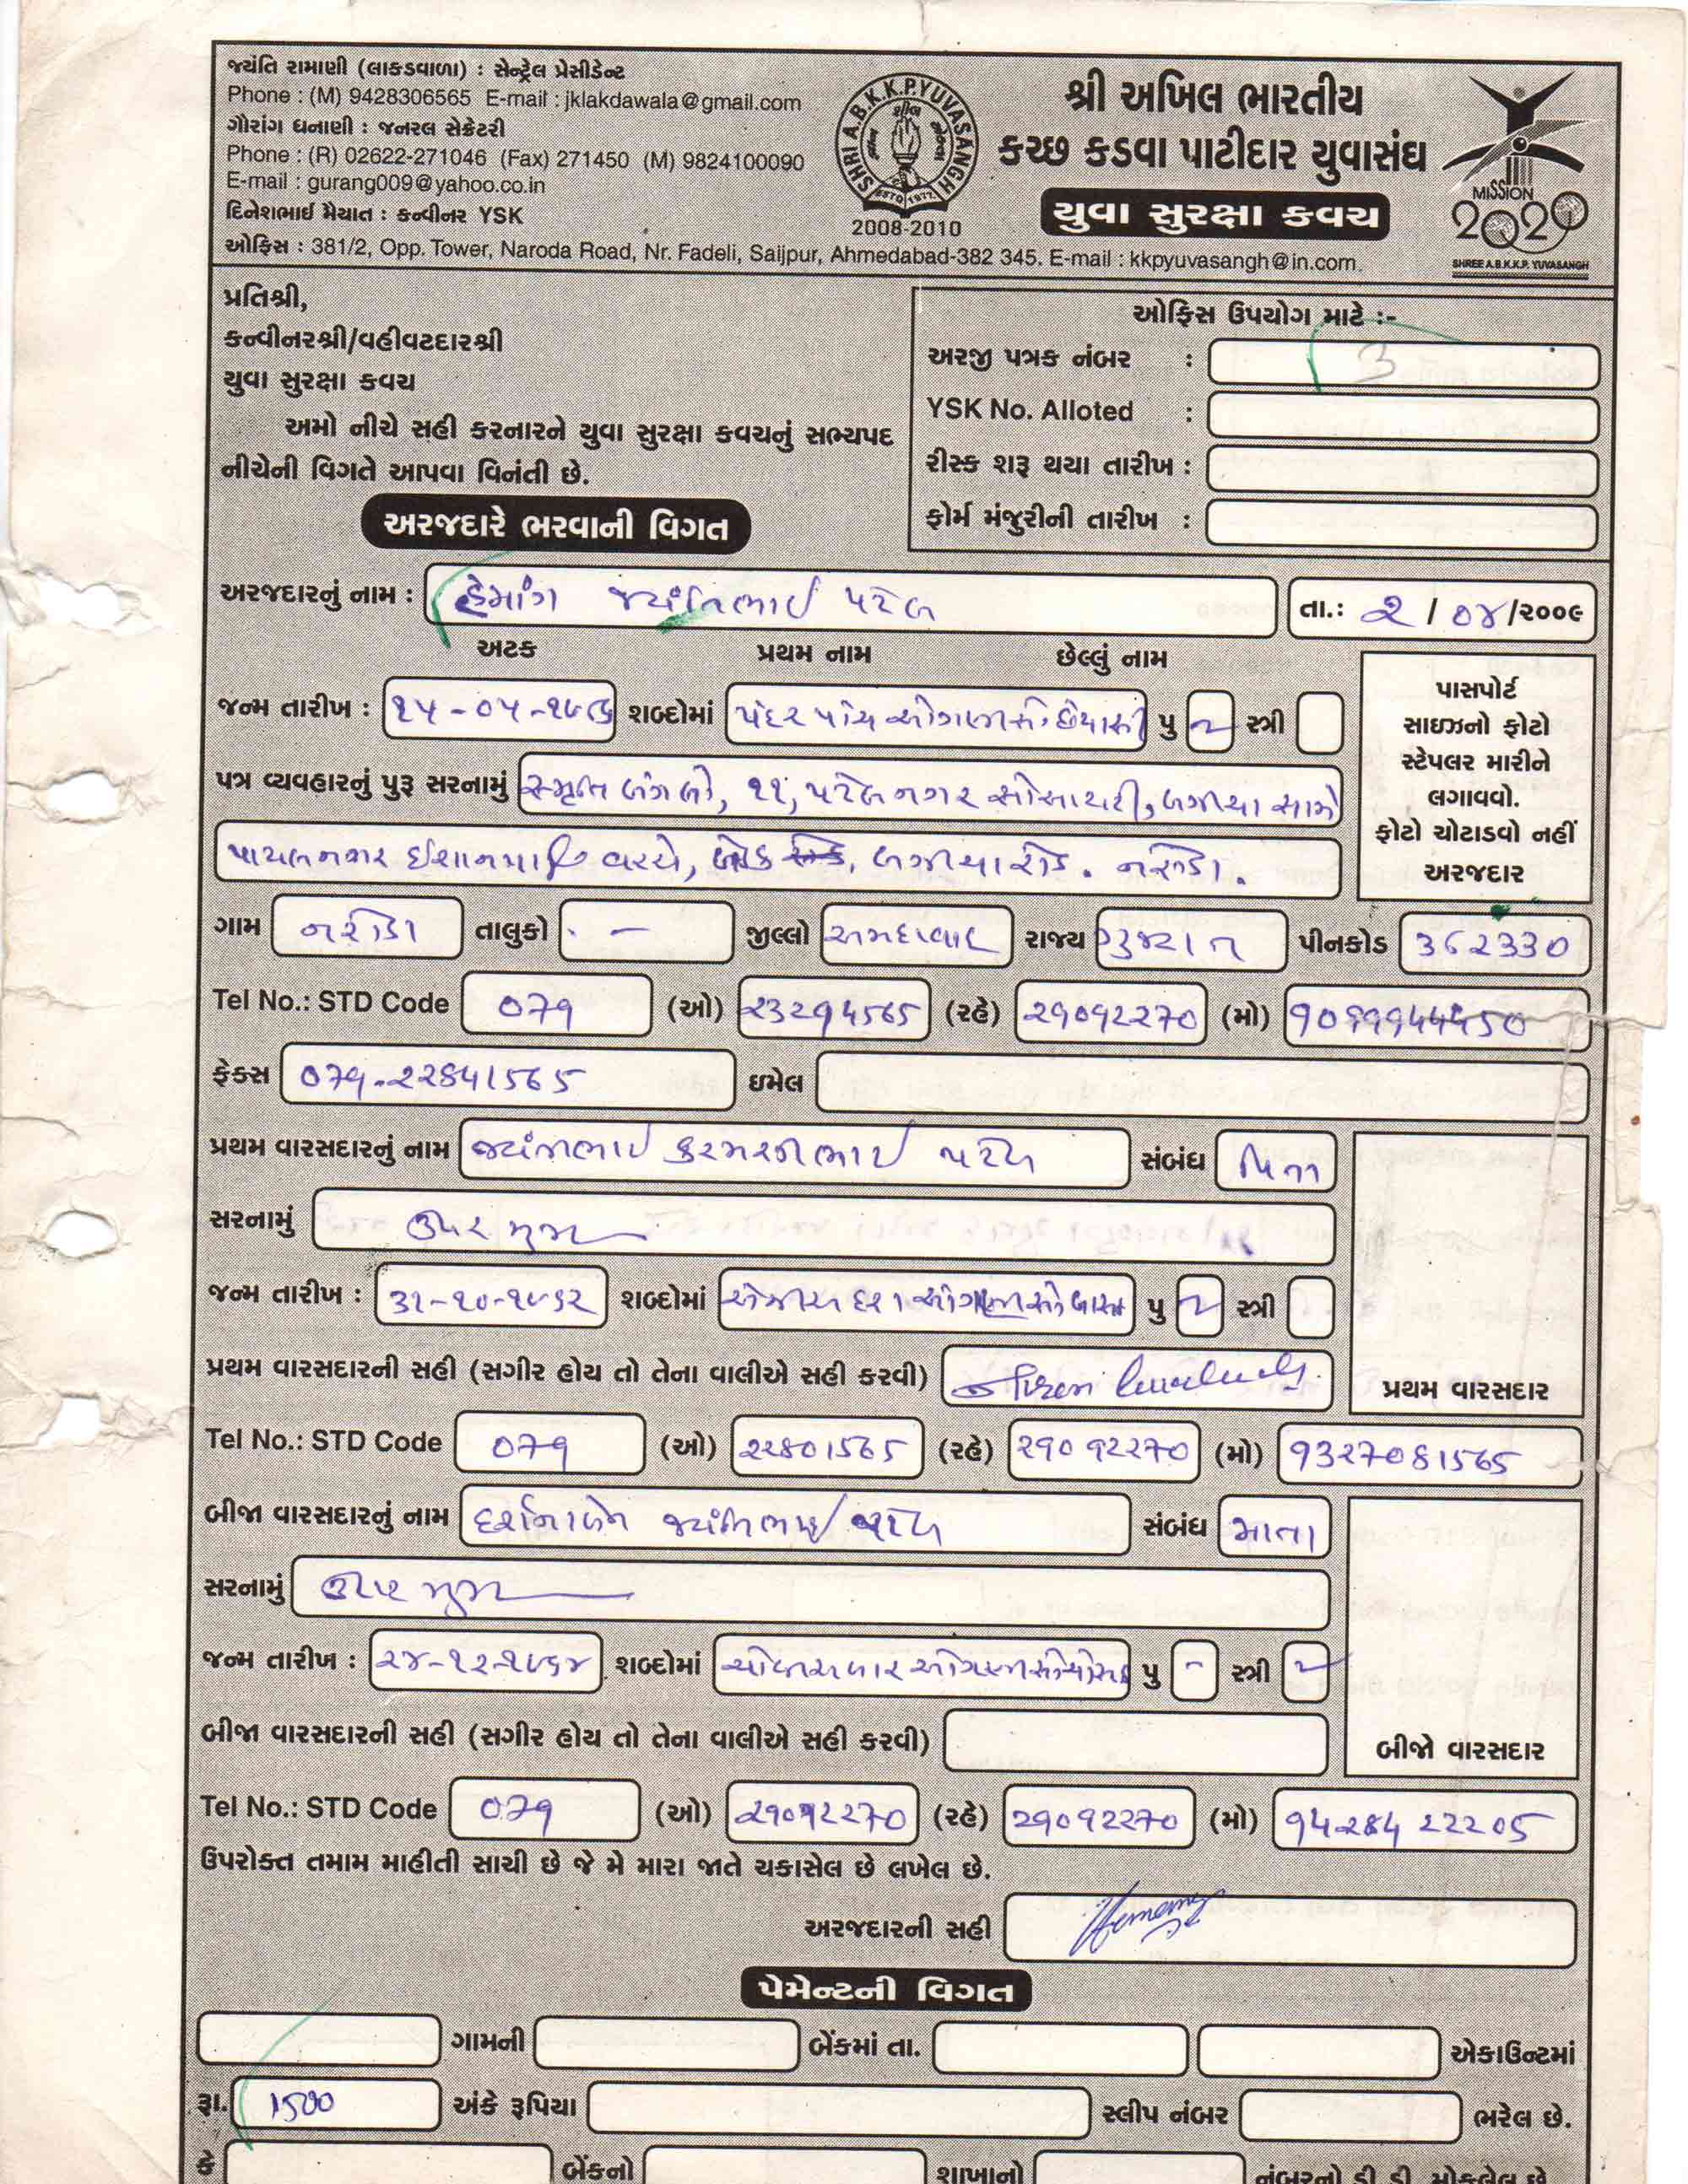 જયંતિ રામાણી (લાકડવાળા) : સેન્ટ્રેલ પ્રેસીડેન્ટ
Phone : (M) 9428306565 E-mail : jklakdawala@gmail.com
ગૌરાંગ ધનાણી : જનરલ સેક્રેટરી
Phone : (R) 02622-271046 (Fax) 271450 (M) 9824100090
E-mail : gurang009@yahoo.co.in
દિનેશભાઈ મૈયાત : કન્વીનર YSK
ઓફિસ : 381/2, Opp. Tower, Naroda Road, Nr. Fadeli, Saijpur, Ahmedabad-382 345. E-mail : kkpyuvasangh@in.com.
SHRI A.B.K.K.P. YUVASANGH
ESTD 1977
2008-2010
શ્રી અખિલ ભારતીય
કચ્છ કડવા પાટીદાર યુવાસંઘ
યુવા સુરક્ષા કવચ
MISSION
2020
SHREE A.B.K.K.P. YUVASANGH
પ્રતિશ્રી,
કન્વીનરશ્રી/વહીવટદારશ્રી
યુવા સુરક્ષા કવચ
અમો નીચે સહી કરનારને યુવા સુરક્ષા કવચનું સભ્યપદ
નીચેની વિગતે આપવા વિનંતી છે.
ઓફિસ ઉપયોગ માટે :-
અરજી પત્રક નંબર : 3
YSK No. Alloted :
રીસ્ક શરૂ થયા તારીખ :
ફોર્મ મંજુરીની તારીખ :
અરજદારે ભરવાની વિગત
અરજદારનું નામ : હેમાંગ જયંતિભાઈ પટેલ તા.: ૨ / ૦૪ /૨૦૦૯
અટક પ્રથમ નામ છેલ્લું નામ
જન્મ તારીખ : ૧૫-૦૫-૧૯૮૬ શબ્દોમાં પંદર પાંચ ઓગણીસો છયાસી પુ સ્ત્રી
પાસપોર્ટ
સાઇઝનો ફોટો
સ્ટેપલર મારીને
લગાવવો.
ફોટો ચોટાડવો નહીં
અરજદાર
પત્ર વ્યવહારનું પુરૂ સરનામું સ્મૃતિ બંગલો, ૧૧, પટેલનગર સોસાયટી, બગીચા સામે
પાયલનગર ઈશાનપાર્ક વચ્ચે, બગીચા રોડ. નરોડા.
ગામ નરોડા તાલુકો - જીલ્લો અમદાવાદ રાજ્ય ગુજરાત પીનકોડ 382330
Tel No.: STD Code 079 (ઓ) (રહે) 29092270 (મો)
ફેક્સ 079-22841565 ઇમેલ
પ્રથમ વારસદારનું નામ જયંતિભાઈ કરમશીભાઈ પટેલ સંબંધ પિતા
સરનામું ઉપર મુજબ
જન્મ તારીખ : ૩૧-૧૦-૧૯૬૨ શબ્દોમાં એકત્રીસ દસ ઓગણીસો બાસઠ પુ સ્ત્રી
પ્રથમ વારસદારની સહી (સગીર હોય તો તેના વાલીએ સહી કરવી)
પ્રથમ વારસદાર
Tel No.: STD Code 079 (ઓ) 22801565 (રહે) 29092270 (મો) 9327081565
બીજા વારસદારનું નામ દર્શનાબેન જયંતિભાઈ પટેલ સંબંધ માતા
સરનામું ઉપર મુજબ
જન્મ તારીખ : ૨૪-૧૨-૧૯૬૪ શબ્દોમાં ચોવીસ બાર ઓગણીસો ચોસઠ પુ - સ્ત્રી
બીજા વારસદારની સહી (સગીર હોય તો તેના વાલીએ સહી કરવી)
બીજો વારસદાર
Tel No.: STD Code 079 (ઓ) 29092270 (રહે) 29092270 (મો) 94284 22205
ઉપરોક્ત તમામ માહીતી સાચી છે જે મે મારા જાતે ચકાસેલ છે લખેલ છે.
અરજદારની સહી Hemang
પેમેન્ટની વિગત
ગામની બેંકમાં તા. એકાઉન્ટમાં
રૂા. 1500 અંકે રૂપિયા સ્લીપ નંબર ભરેલ છે.
કે બેંકનો શાખાનો નંબરનો ડી.ડી. મોકલેલ છે.